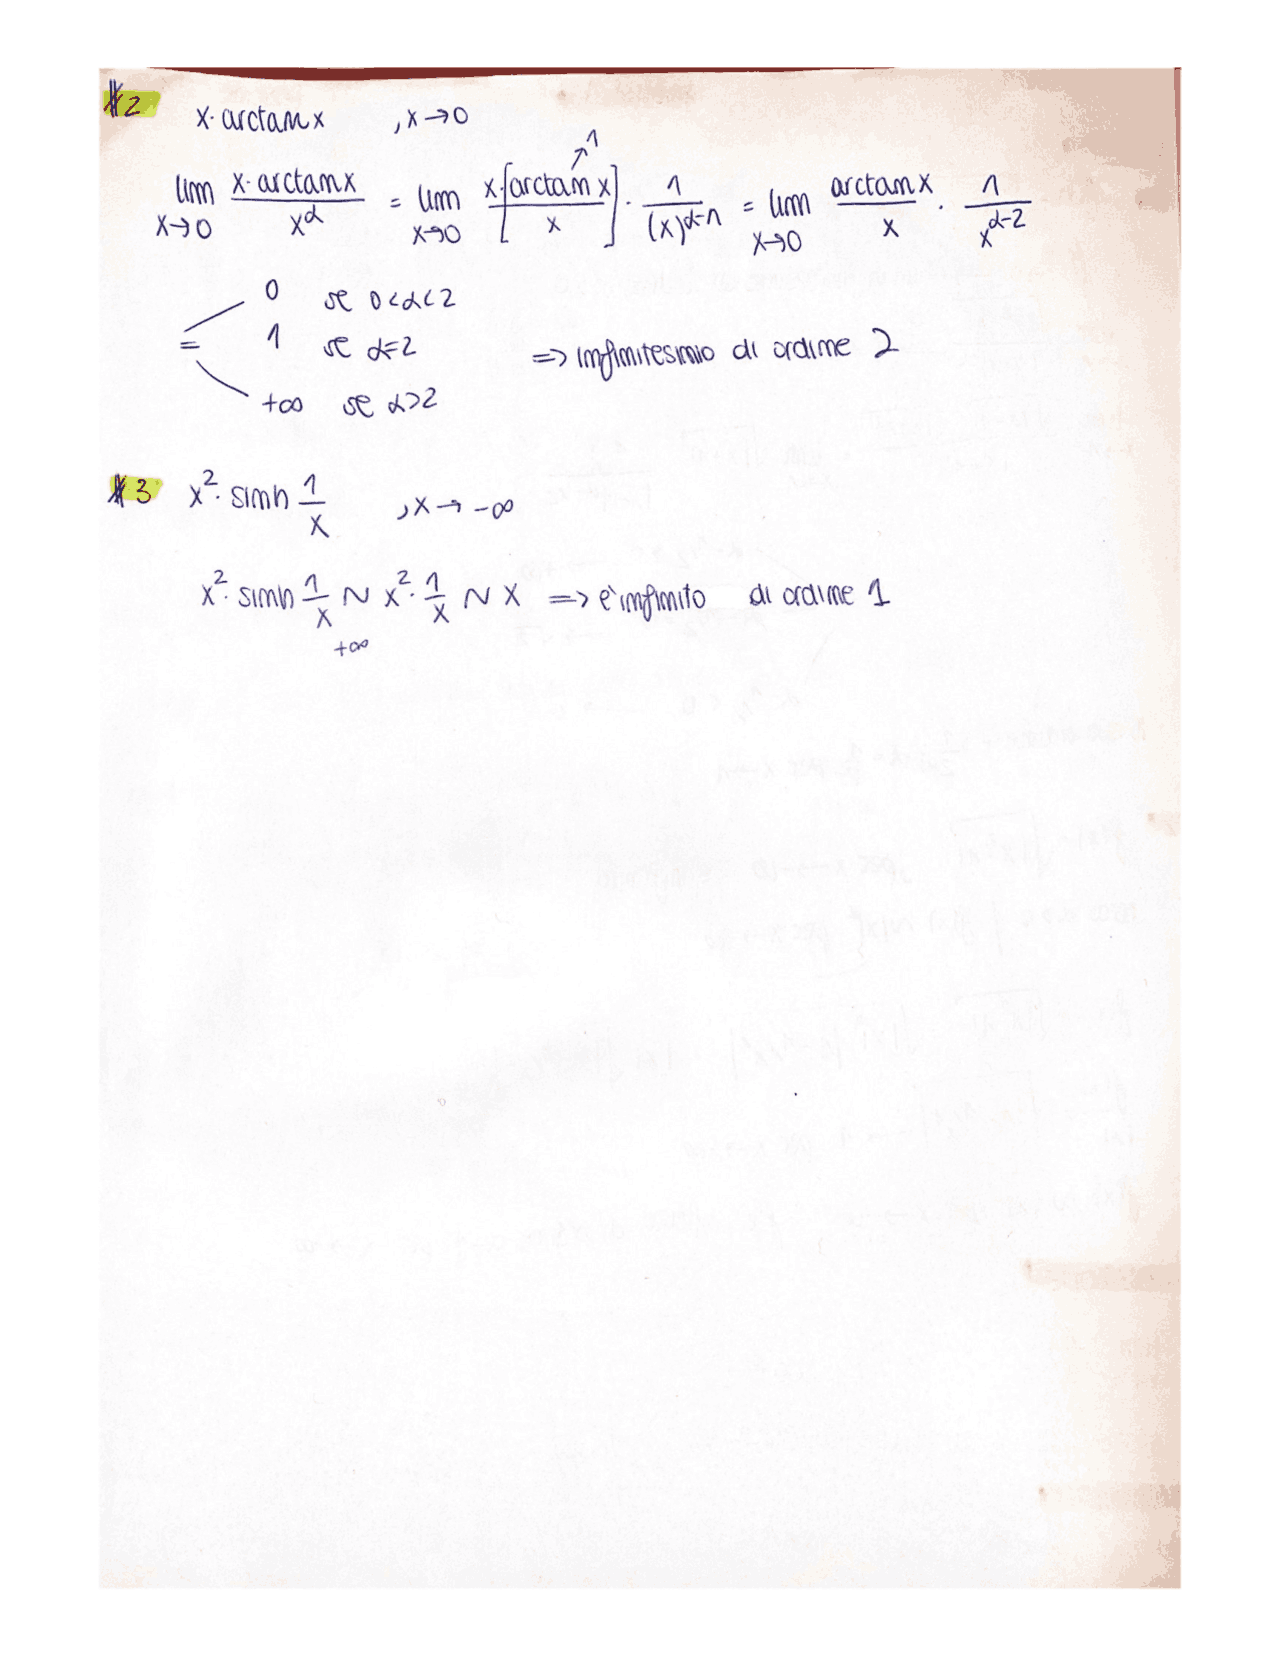 #2 x· arctan x , x → 0
lim x→0 x· arctan x / x^α = lim x→0 x·[arctan x / x] ↗1 · 1/(x)^α-1 = lim x→0 arctan x / x · 1/x^α-2
= 0 se 0<α<2
1 se α=2 => infinitesimo di ordine 2
+∞ se α>2
#3 x²· sinh 1/x , x → -∞
x²· sinh 1/x ~ x²· 1/x ~ x => è infinito di ordine 1
+∞